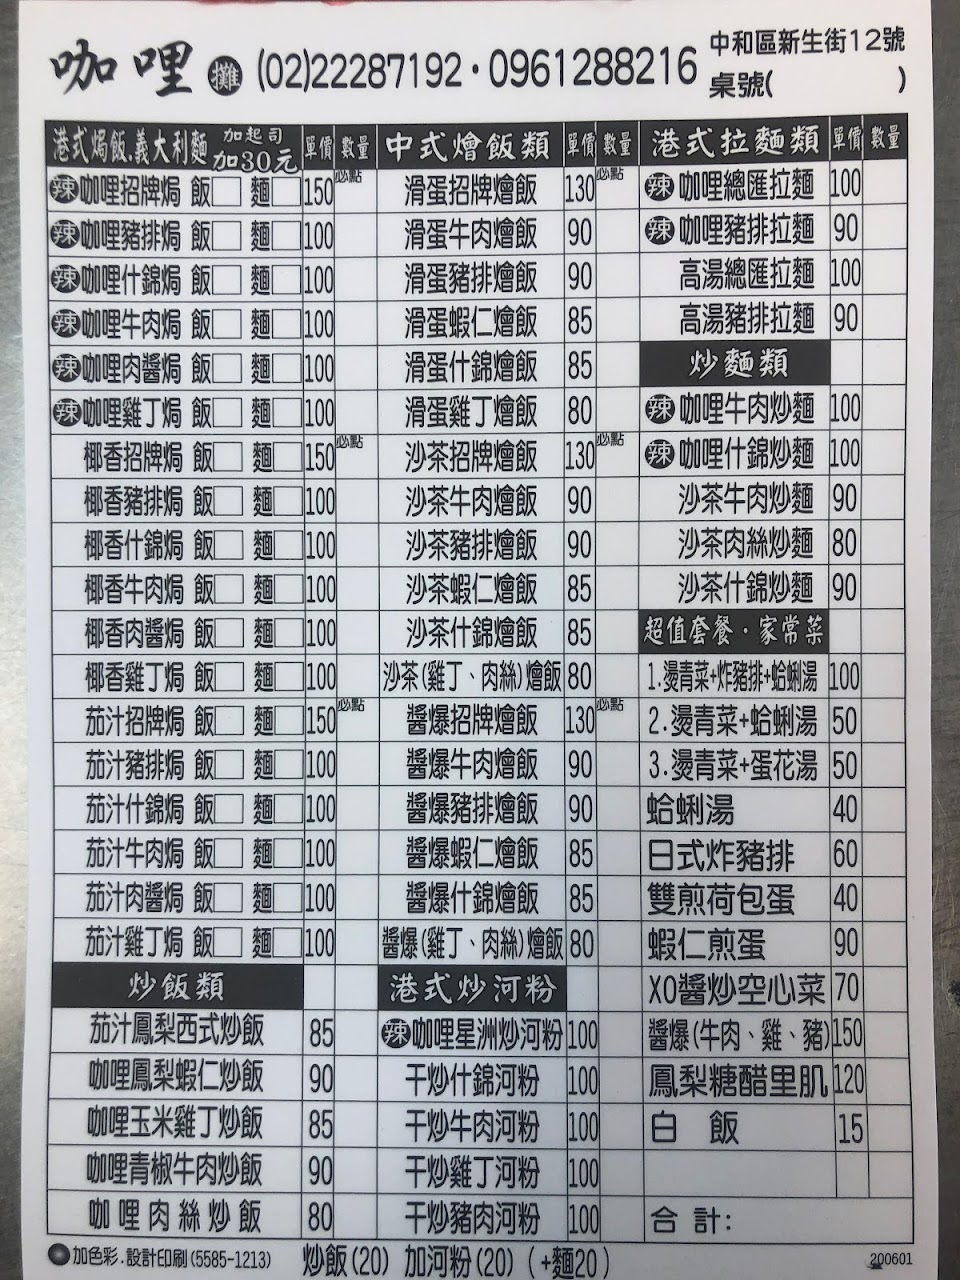 咖哩攤 (02)22287192·0961288216 中和區新生街12號
桌號( )
港式焗飯.義大利麵 加起司加30元 單價 數量
辣咖哩招牌焗 飯□ 麵□ 150 必點
辣咖哩豬排焗 飯□ 麵□ 100
辣咖哩什錦焗 飯□ 麵□ 100
辣咖哩牛肉焗 飯□ 麵□ 100
辣咖哩肉醬焗 飯□ 麵□ 100
辣咖哩雞丁焗 飯□ 麵□ 100
椰香招牌焗 飯□ 麵□ 150 必點
椰香豬排焗 飯□ 麵□ 100
椰香什錦焗 飯□ 麵□ 100
椰香牛肉焗 飯□ 麵□ 100
椰香肉醬焗 飯□ 麵□ 100
椰香雞丁焗 飯□ 麵□ 100
茄汁招牌焗 飯□ 麵□ 150 必點
茄汁豬排焗 飯□ 麵□ 100
茄汁什錦焗 飯□ 麵□ 100
茄汁牛肉焗 飯□ 麵□ 100
茄汁肉醬焗 飯□ 麵□ 100
茄汁雞丁焗 飯□ 麵□ 100
炒飯類
茄汁鳳梨西式炒飯 85
咖哩鳳梨蝦仁炒飯 90
咖哩玉米雞丁炒飯 85
咖哩青椒牛肉炒飯 90
咖哩肉絲炒飯 80
中式燴飯類 單價 數量
滑蛋招牌燴飯 130 必點
滑蛋牛肉燴飯 90
滑蛋豬排燴飯 90
滑蛋蝦仁燴飯 85
滑蛋什錦燴飯 85
滑蛋雞丁燴飯 80
沙茶招牌燴飯 130 必點
沙茶牛肉燴飯 90
沙茶豬排燴飯 90
沙茶蝦仁燴飯 85
沙茶什錦燴飯 85
沙茶(雞丁、肉絲)燴飯 80
醬爆招牌燴飯 130 必點
醬爆牛肉燴飯 90
醬爆豬排燴飯 90
醬爆蝦仁燴飯 85
醬爆什錦燴飯 85
醬爆(雞丁、肉絲)燴飯 80
港式炒河粉
辣咖哩星洲炒河粉 100
干炒什錦河粉 100
干炒牛肉河粉 100
干炒雞丁河粉 100
干炒豬肉河粉 100
港式拉麵類 單價 數量
辣咖哩總匯拉麵 100
辣咖哩豬排拉麵 90
高湯總匯拉麵 100
高湯豬排拉麵 90
炒麵類
辣咖哩牛肉炒麵 100
辣咖哩什錦炒麵 100
沙茶牛肉炒麵 90
沙茶肉絲炒麵 80
沙茶什錦炒麵 90
超值套餐·家常菜
1.燙青菜+炸豬排+蛤蜊湯 100
2.燙青菜+蛤蜊湯 50
3.燙青菜+蛋花湯 50
蛤蜊湯 40
日式炸豬排 60
雙煎荷包蛋 40
蝦仁煎蛋 90
XO醬炒空心菜 70
醬爆(牛肉、雞、豬) 150
鳳梨糖醋里肌 120
白飯 15
合計:
加色彩.設計印刷(5585-1213) 炒飯(20) 加河粉(20) (+麵20) 200601